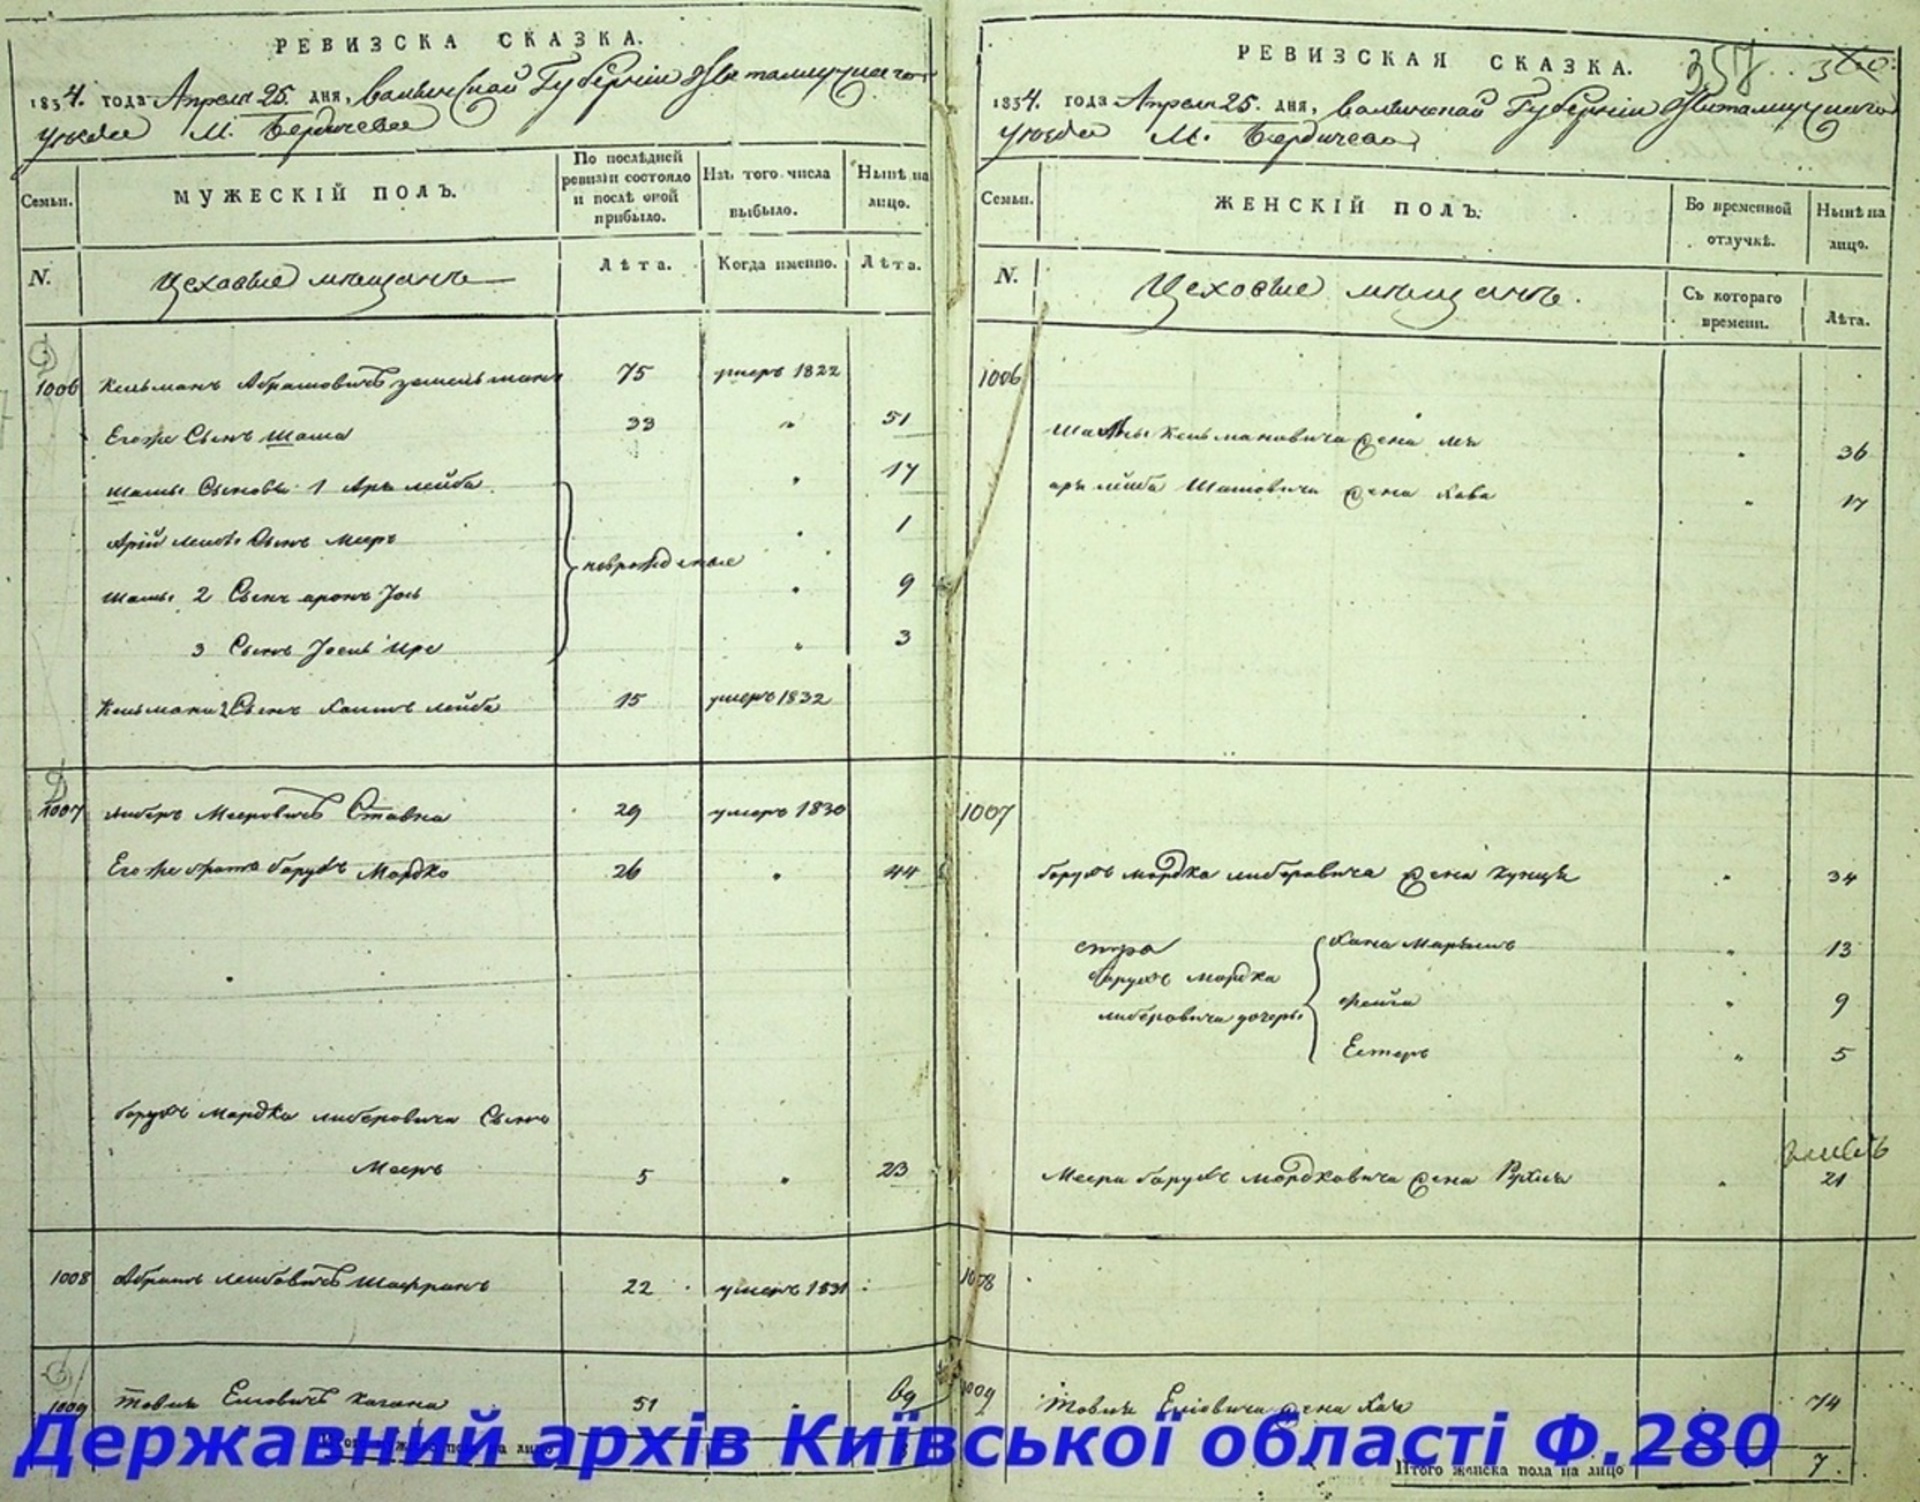 РЕВИЗСКА СКАЗКА.
1834. года Апреля 25. дня, Волынской Губерніи Житомирскаго
уезда М. Бердичева
Семьи.
МУЖЕСКІЙ ПОЛЪ.
По послѣдней ревизіи состояло и послѣ оной прибыло.
Изъ того числа выбыло.
Нынѣ на лицо.
N.
Цеховые мещане
Лѣта.
Когда именно.
Лѣта.
1006 Кельманъ Абрамовичъ 75 умеръ 1822
Егоже Сынъ Шама 33 " 51
Шамы Сыновья 1 Арь лейба " 17
Арій лейбы Сынъ Меер 1
новрожденные
Шамы 2 Сынъ аронъJось " 9
3 Сынъ " 3
Кельмана 2 Сынъ Хаимъ лейба 15 умеръ 1832
1007 Либеръ Мееровичъ Ставна 29 умеръ 1830
Егоже братъ борухъ Мордко 26 " 44
борухъ Мордка либеровича Сынъ
Мееръ 5 " 23
1008 Абрамъ лейбовичъ Шафранъ 22 умеръ 1831
1009 Товия 51 69
РЕВИЗСКАЯ СКАЗКА.
357
1834. года Апреля 25. дня, Волынской Губерніи Житомирскаго
уезда М. Бердичева
Семьи.
ЖЕНСКІЙ ПОЛЪ.
Во временной отлучкѣ.
Нынѣ на лицо.
N.
Цеховые мещане.
Съ котораго времени.
Лѣта.
1006
Шамы Кельмановича жена " 36
арь лейба Шамовича жена Хава " 17
1007
борухъ мордка либеровича жена " 34
Хана " 13
борухъ мордка
либеровича дочери
Фейга " 9
Естеръ " 5
Меера борухъ мордковича жена " 21
1008
1009 Товии жена Хая 74
Итого женска пола на лицо 7.
Державний архів Київської області Ф.280